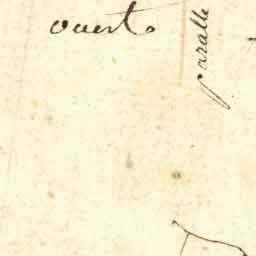 ouest.
paralle